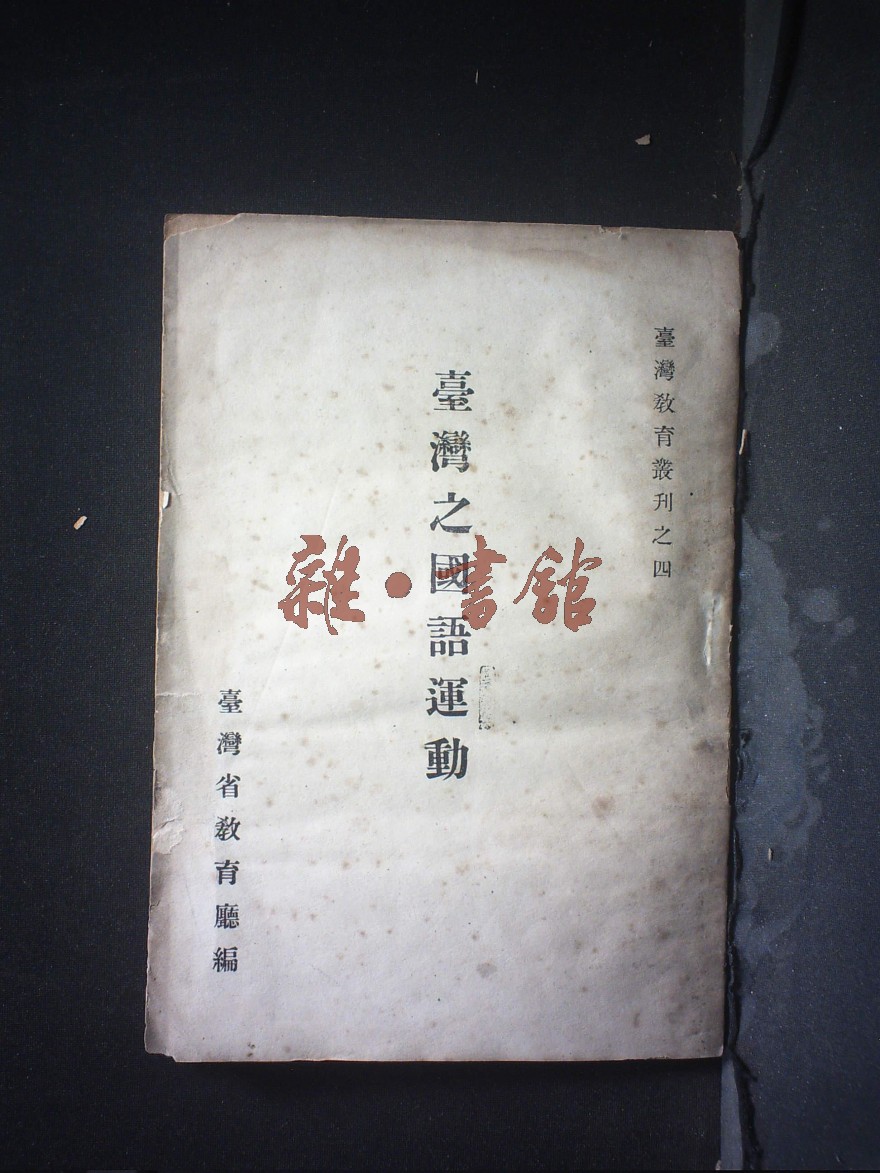 臺灣教育叢刊之四
臺灣之國語運動
臺灣省教育廳編
雜·書館